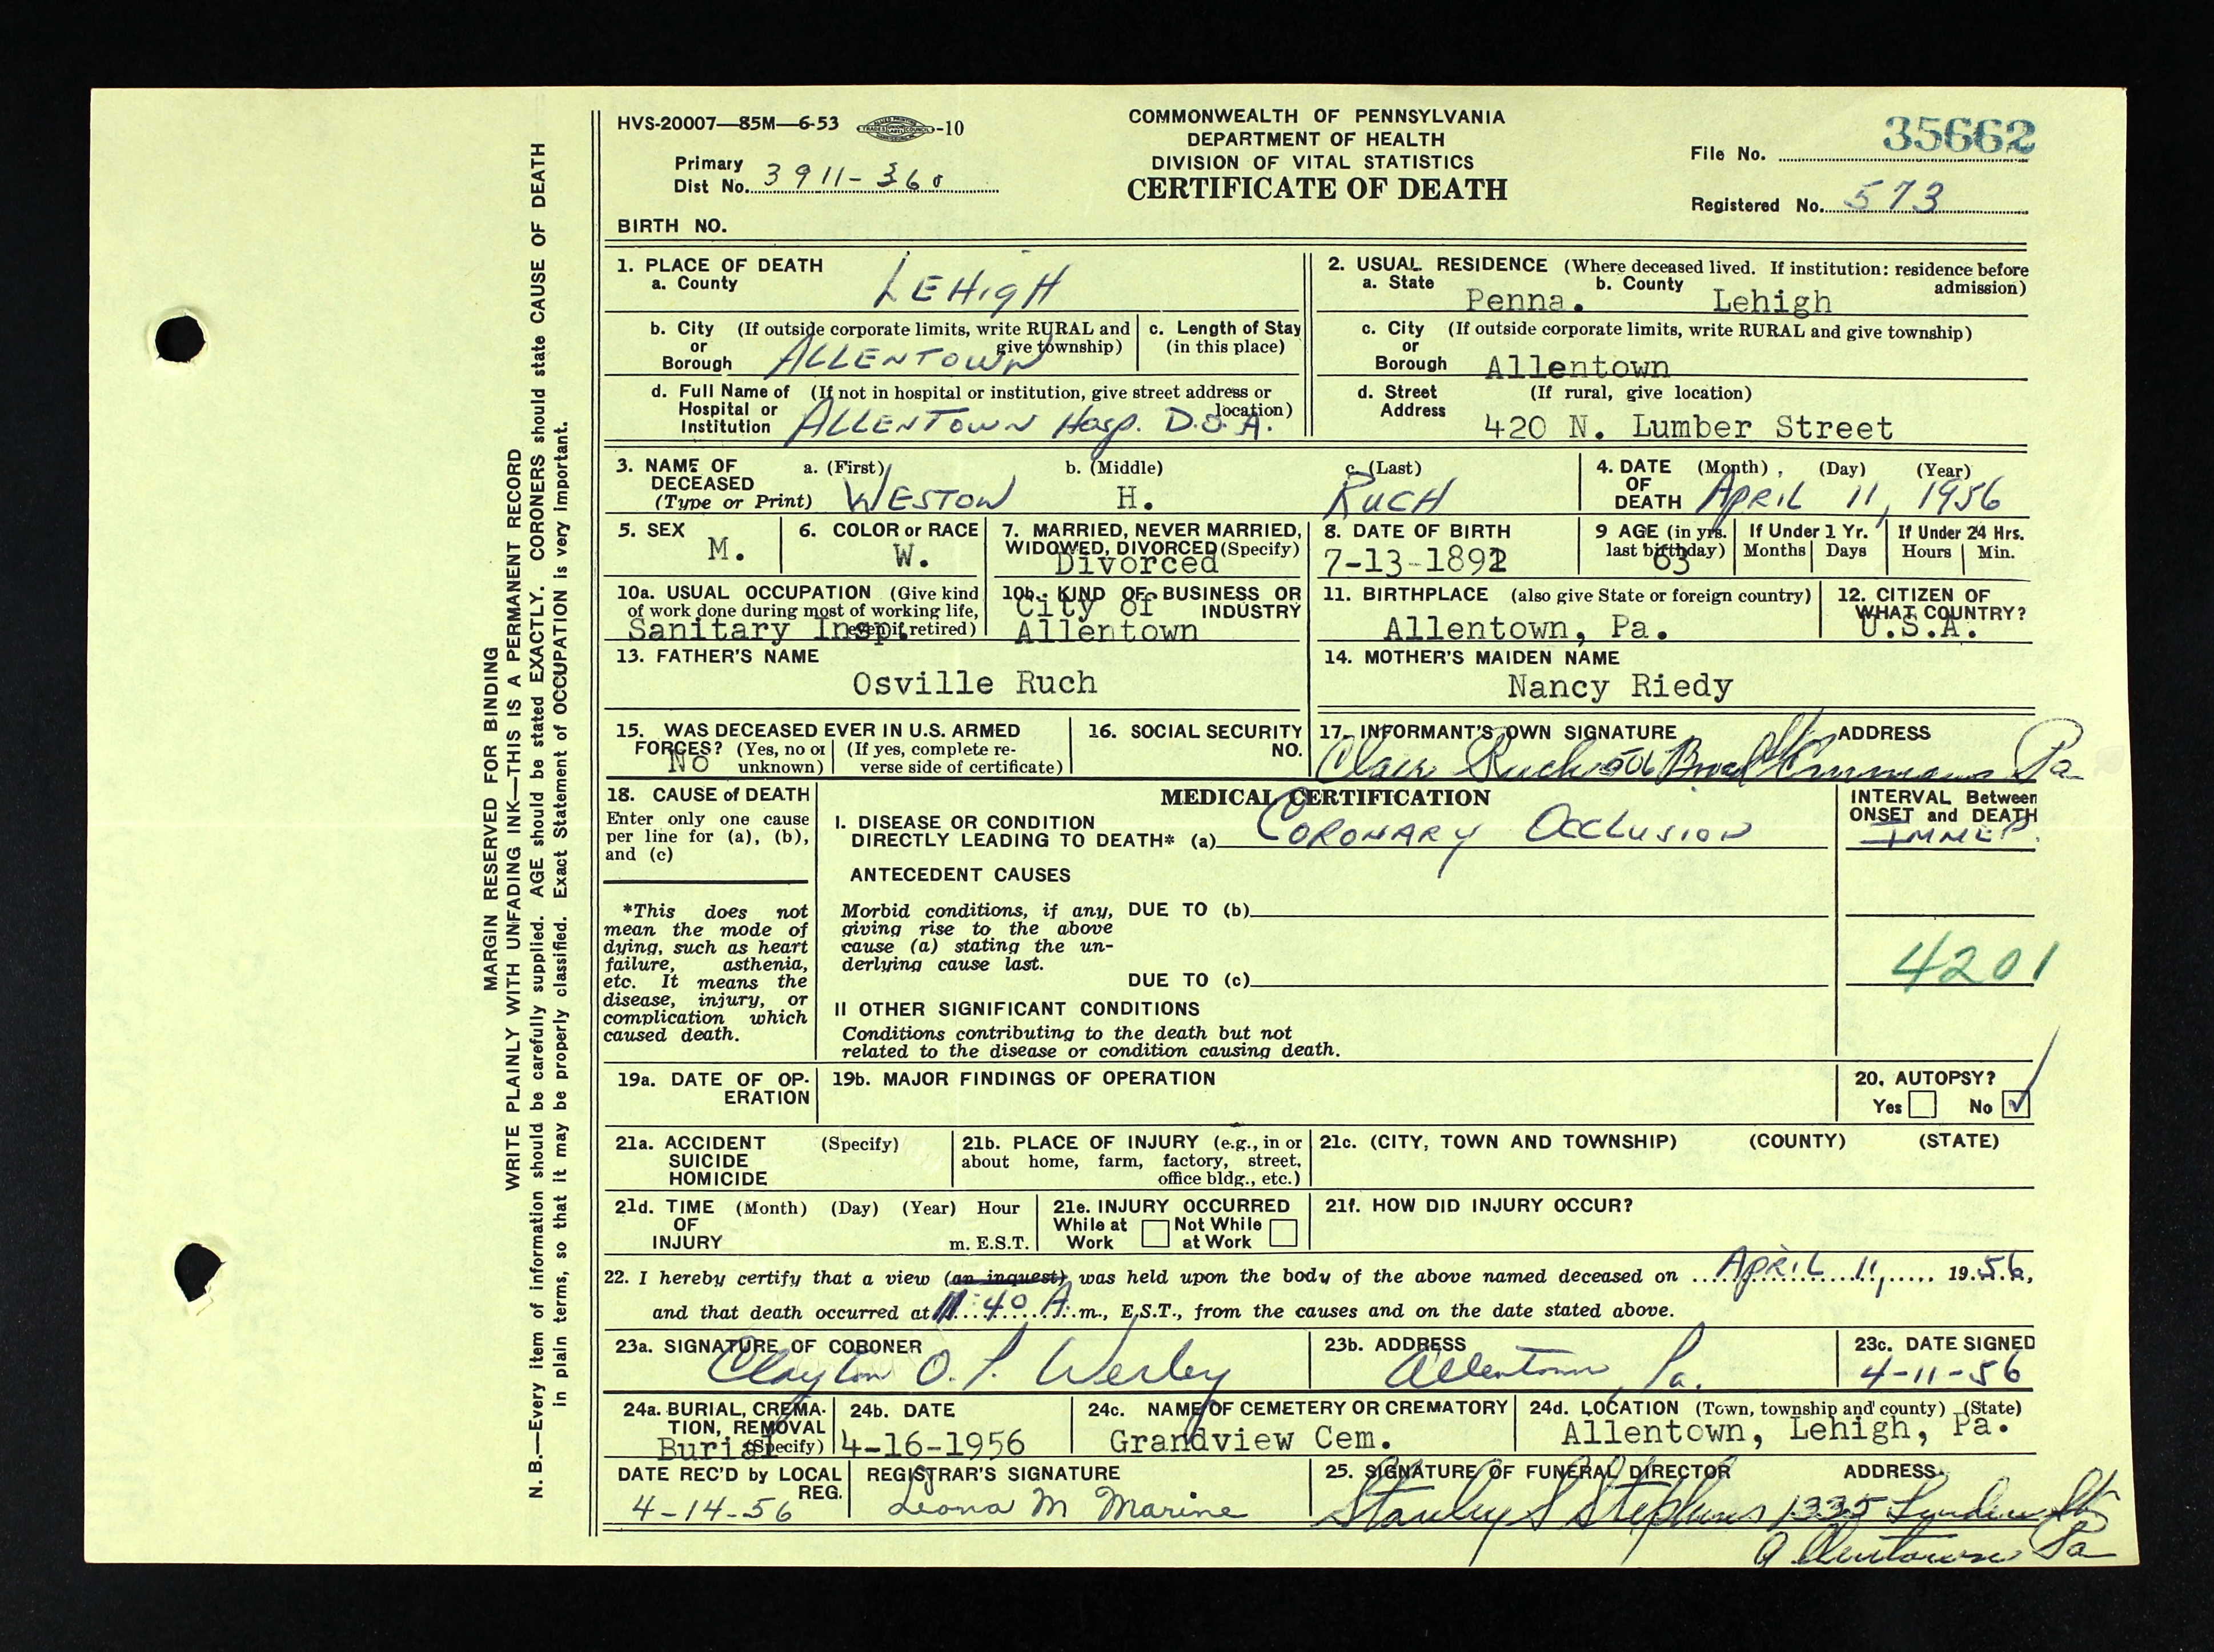 HVS-20007—85M—6-53 -10
COMMONWEALTH OF PENNSYLVANIA
DEPARTMENT OF HEALTH
DIVISION OF VITAL STATISTICS
CERTIFICATE OF DEATH
Primary
Dist No. 3911-360
File No. 35662
Registered No. 573
BIRTH NO.
1. PLACE OF DEATH
a. County LEHIGH
b. City (If outside corporate limits, write RURAL and
or give township)
Borough ALLENTOWN
c. Length of Stay
(in this place)
d. Full Name of (If not in hospital or institution, give street address or
Hospital or location)
Institution ALLENTOWN Hosp. D.O.A.
2. USUAL RESIDENCE (Where deceased lived. If institution: residence before
admission)
a. State Penna. b. County Lehigh
c. City (If outside corporate limits, write RURAL and give township)
or
Borough Allentown
d. Street (If rural, give location)
Address 420 N. Lumber Street
3. NAME OF a. (First) b. (Middle) c. (Last)
DECEASED
(Type or Print) WESTON H. RUCH
4. DATE (Month) (Day) (Year)
OF
DEATH APRIL 11, 1956
5. SEX
M.
6. COLOR or RACE
W.
7. MARRIED, NEVER MARRIED,
WIDOWED, DIVORCED (Specify)
Divorced
8. DATE OF BIRTH
7-13-1892
9 AGE (in yrs.
last birthday)
63
If Under 1 Yr.
Months Days
If Under 24 Hrs.
Hours Min.
10a. USUAL OCCUPATION (Give kind
of work done during most of working life,
even if retired)
Sanitary Insp.
10b. KIND OF BUSINESS OR
INDUSTRY
City of
Allentown
11. BIRTHPLACE (also give State or foreign country)
Allentown, Pa.
12. CITIZEN OF
WHAT COUNTRY?
U.S.A.
13. FATHER'S NAME
Osville Ruch
14. MOTHER'S MAIDEN NAME
Nancy Riedy
15. WAS DECEASED EVER IN U.S. ARMED
FORCES? (Yes, no or (If yes, complete re-
unknown) verse side of certificate)
No
16. SOCIAL SECURITY
NO.
17. INFORMANT'S OWN SIGNATURE ADDRESS
Clair Ruch 506 Broad St Emmaus Pa
18. CAUSE of DEATH
Enter only one cause
per line for (a), (b),
and (c)
*This does not
mean the mode of
dying, such as heart
failure, asthenia,
etc. It means the
disease, injury, or
complication which
caused death.
MEDICAL CERTIFICATION
I. DISEASE OR CONDITION
DIRECTLY LEADING TO DEATH* (a) CORONARY OCCLUSION
INTERVAL Between
ONSET and DEATH
IMMED.
ANTECEDENT CAUSES
Morbid conditions, if any, DUE TO (b)
giving rise to the above
cause (a) stating the un-
derlying cause last.
DUE TO (c)
4201
II OTHER SIGNIFICANT CONDITIONS
Conditions contributing to the death but not
related to the disease or condition causing death.
19a. DATE OF OP-
ERATION
19b. MAJOR FINDINGS OF OPERATION
20. AUTOPSY?
Yes No
21a. ACCIDENT (Specify)
SUICIDE
HOMICIDE
21b. PLACE OF INJURY (e.g., in or
about home, farm, factory, street,
office bldg., etc.)
21c. (CITY, TOWN AND TOWNSHIP) (COUNTY) (STATE)
21d. TIME (Month) (Day) (Year) Hour
OF
INJURY m. E.S.T.
21e. INJURY OCCURRED
While at Not While
Work at Work
21f. HOW DID INJURY OCCUR?
22. I hereby certify that a view (an inquest) was held upon the body of the above named deceased on APRIL 11, 1956,
and that death occurred at 11:40 A.m., E.S.T., from the causes and on the date stated above.
23a. SIGNATURE OF CORONER
Clayton O. P. Werley
23b. ADDRESS
Allentown, Pa.
23c. DATE SIGNED
4-11-56
24a. BURIAL, CREMA-
TION, REMOVAL
(Specify)
Burial
24b. DATE
4-16-1956
24c. NAME OF CEMETERY OR CREMATORY
Grandview Cem.
24d. LOCATION (Town, township and county) (State)
Allentown, Lehigh, Pa.
DATE REC'D by LOCAL
REG.
4-14-56
REGISTRAR'S SIGNATURE
Leona M Marine
25. SIGNATURE OF FUNERAL DIRECTOR ADDRESS
Stanley S Stephens 1335 Linden St
Allentown Pa
MARGIN RESERVED FOR BINDING
WRITE PLAINLY WITH UNFADING INK—THIS IS A PERMANENT RECORD
N. B.—Every item of information should be carefully supplied. AGE should be stated EXACTLY. CORONERS should state CAUSE OF DEATH
in plain terms, so that it may be properly classified. Exact Statement of OCCUPATION is very important.